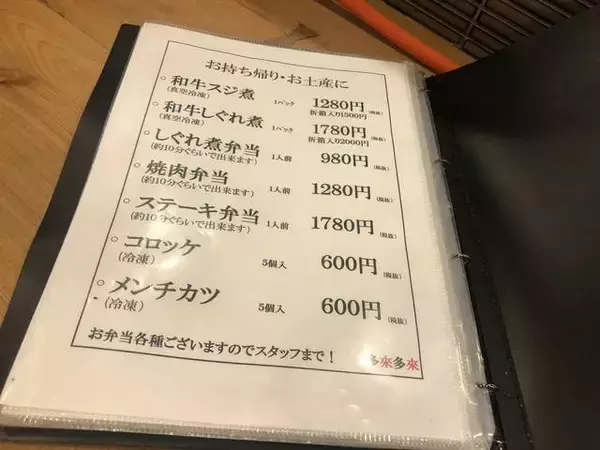 お持ち帰り・お土産に
○ 和牛スジ煮 1パック 1280円 (税抜)
(真空冷凍) 折箱入り1500円
○ 和牛しぐれ煮 1パック 1780円 (税抜)
(真空冷凍) 折箱入り2000円
○ しぐれ煮弁当 1人前 980円 (税抜)
(約10分ぐらいで出来ます)
○ 焼肉弁当 1人前 1280円 (税抜)
(約10分ぐらいで出来ます)
○ ステーキ弁当 1人前 1780円 (税抜)
(約10分ぐらいで出来ます)
○ コロッケ 5個入 600円 (税抜)
(冷凍)
○ メンチカツ 5個入 600円 (税抜)
(冷凍)
お弁当各種ございますのでスタッフまで！ 多來多來